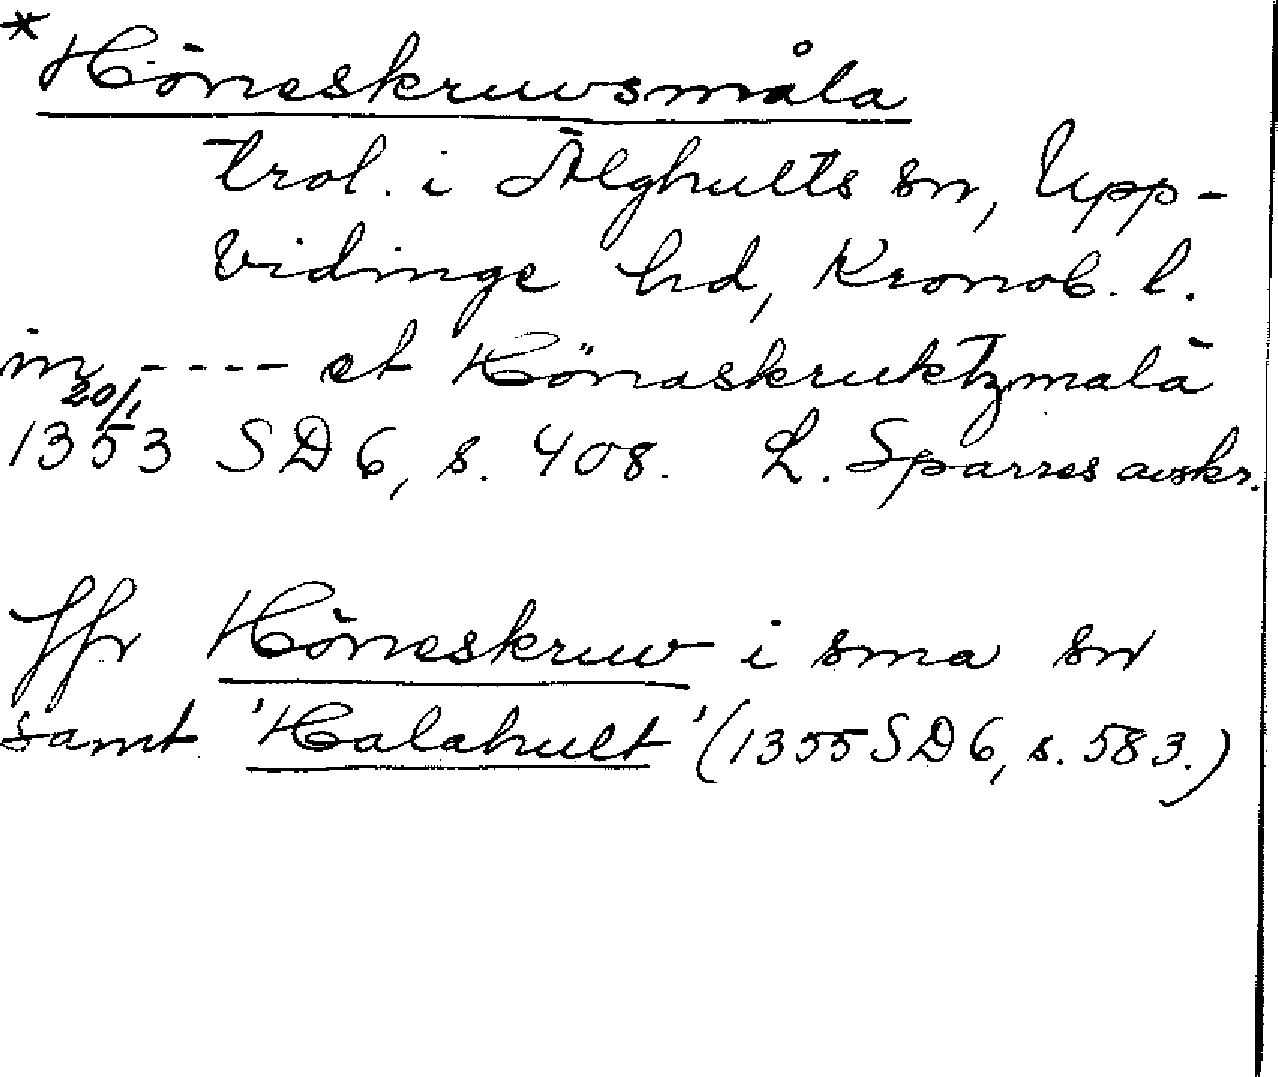 *Höneskruvsmåla
trol. i Älghults sn, Upp-
vidinge hd, Kronob. l.
in ---- et Hönaskruktzmala
20/1
1353 SD 6, s. 408. L. Sparres avskr.
Jfr Höneskruv i sma sn
samt 'Halahult' (1355 SD 6, s. 583.)